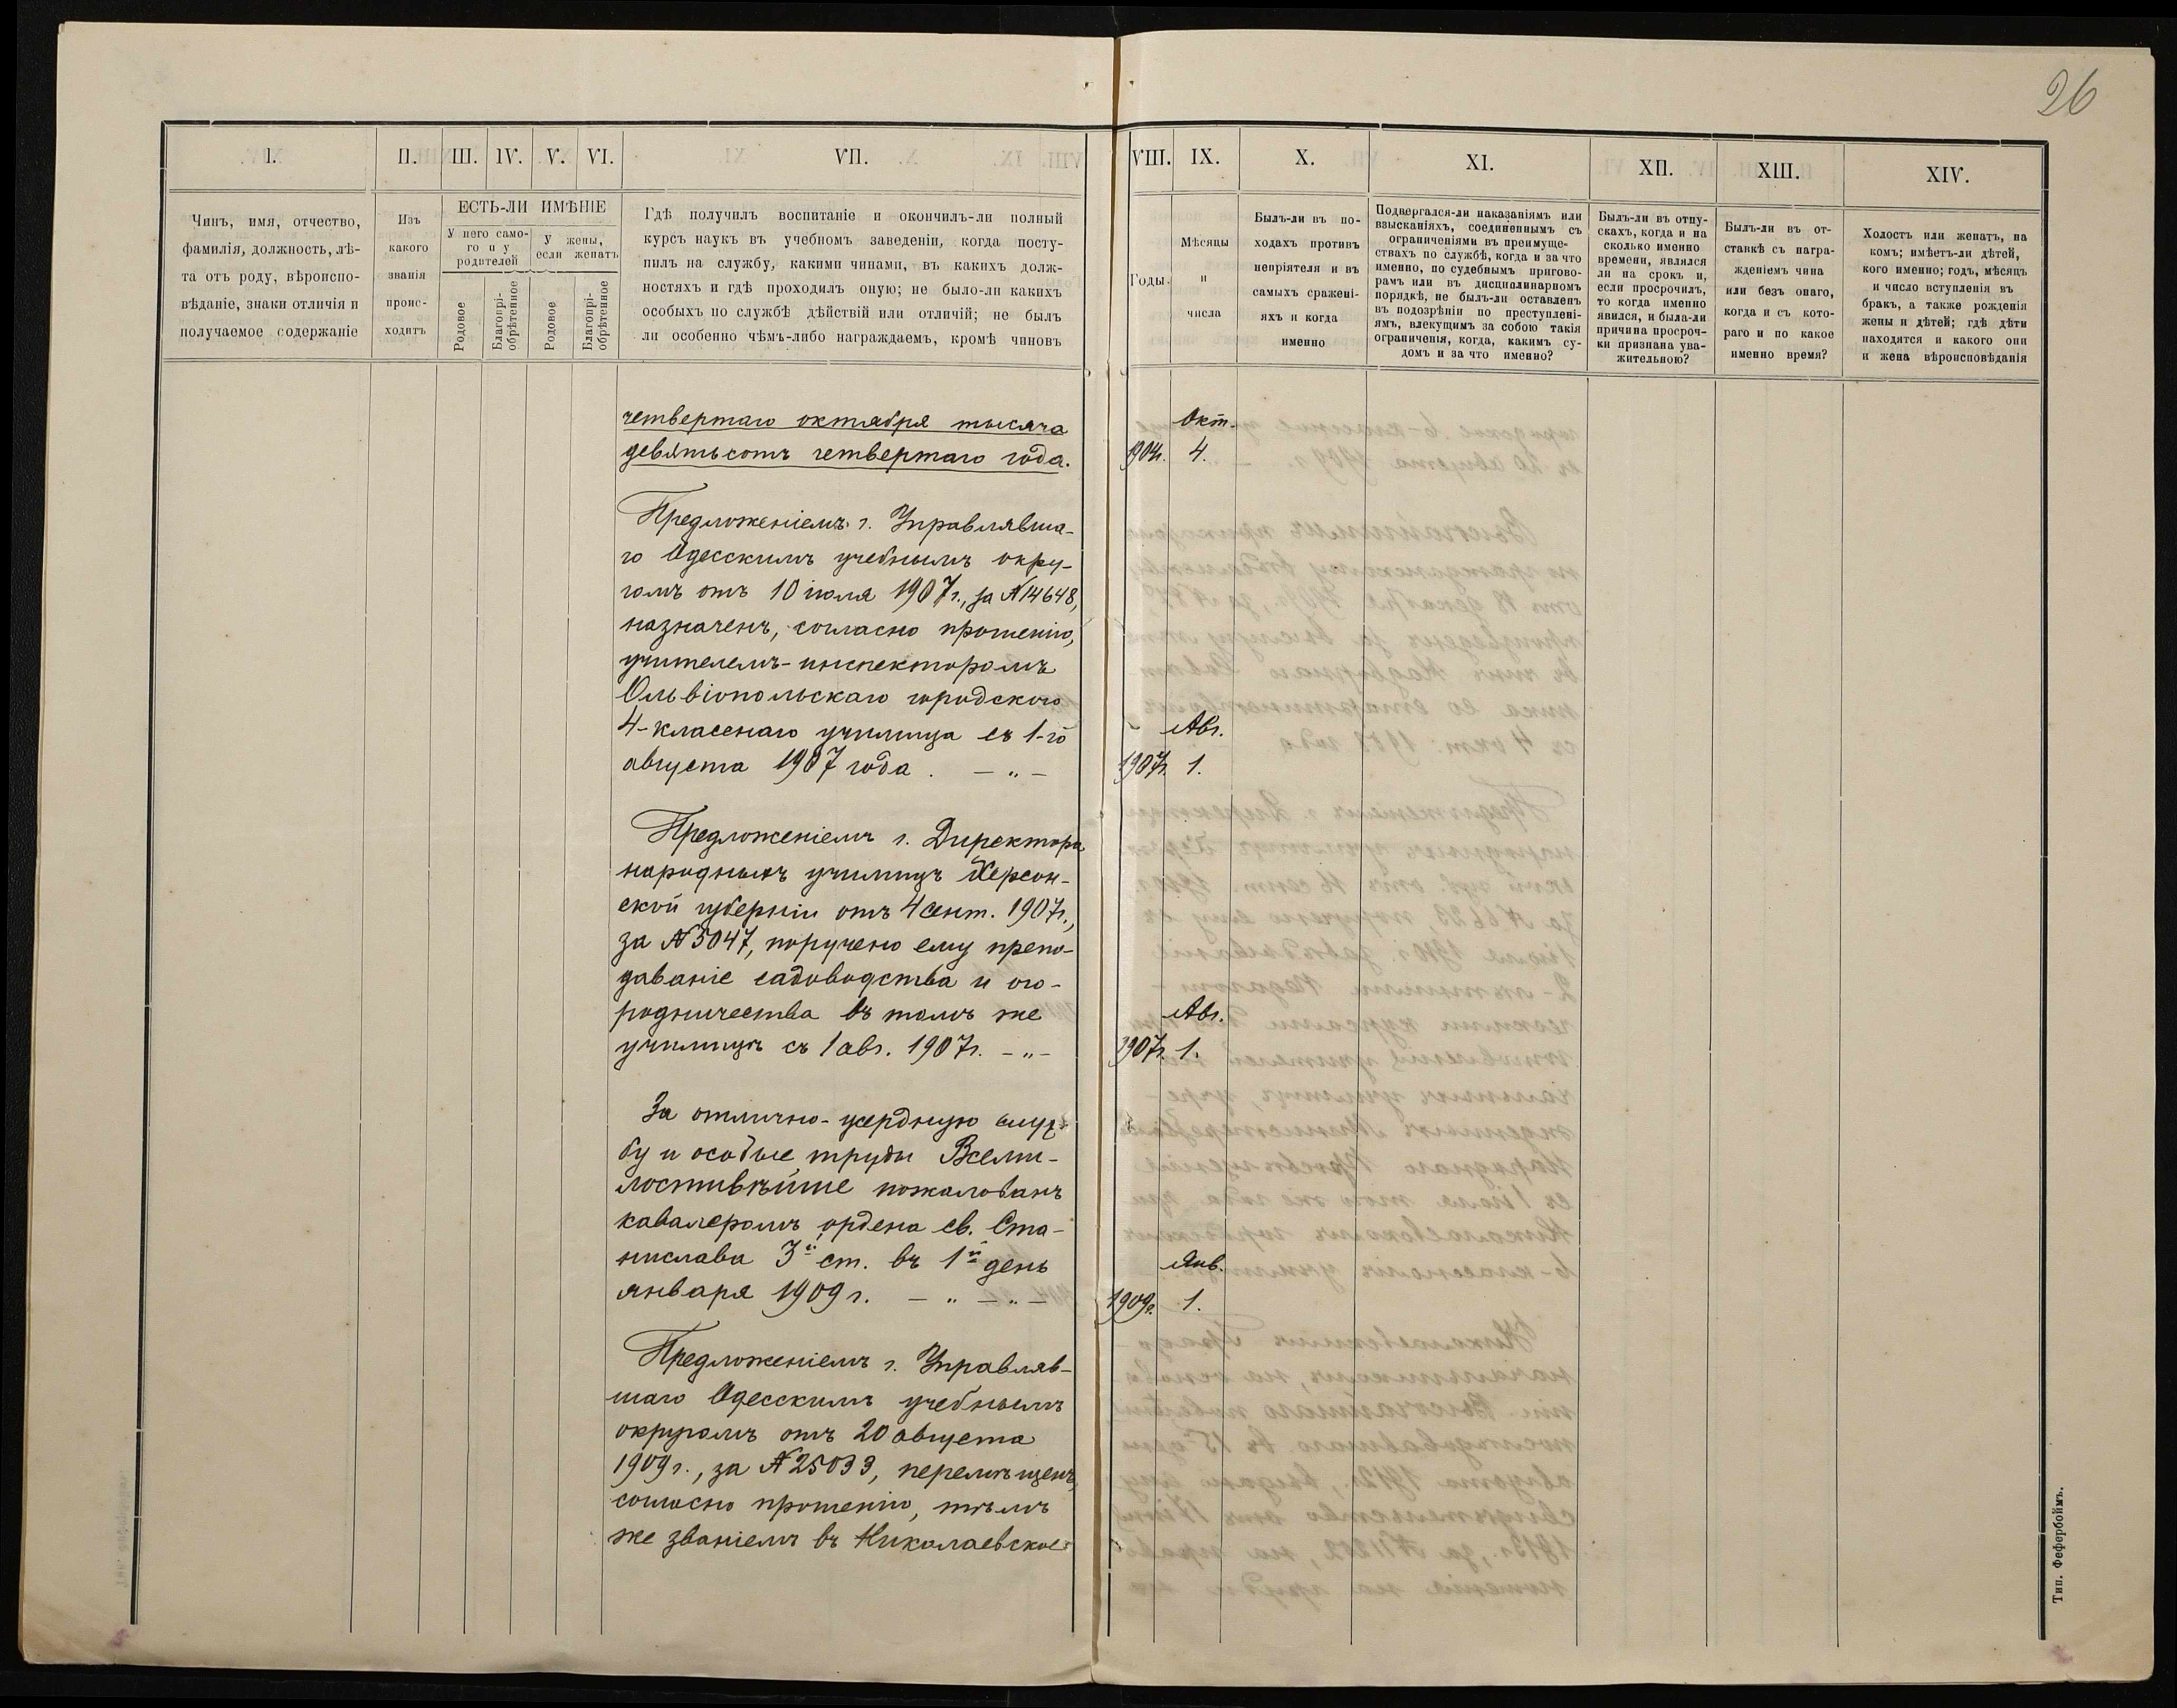 26
I.
II.
III.
IV.
V.
VI.
VII.
VIII.
IX.
X.
XI.
XII.
XIII.
XIV.
Чинъ, имя, отчество,
фамилія, должность, лѣ-
та отъ роду, вѣроиспо-
вѣданіе, знаки отличія и
получаемое содержаніе
Изъ
какого
званія
проис-
ходитъ
ЕСТЬ-ЛИ ИМѢНІЕ
У него само-
го и у
родителей
У жены,
если женатъ
Родовое
Благопрі-
обрѣтенное
Родовое
Благопрі-
обрѣтенное
Гдѣ получилъ воспитаніе и окончилъ-ли полный
курсъ наукъ въ учебномъ заведеніи, когда посту-
пилъ на службу, какими чинами, въ какихъ долж-
ностяхъ и гдѣ проходилъ оную; не было-ли какихъ
особыхъ по службѣ дѣйствій или отличій; не былъ
ли особенно чѣмъ-либо награждаемъ, кромѣ чиновъ
Годы.
Мѣсяцы
и
числа
Былъ-ли въ по-
ходахъ противъ
непріятеля и въ
самыхъ сражені-
яхъ и когда
именно
Подвергался-ли наказаніямъ или
взысканіяхъ, соединеннымъ съ
ограниченіями въ преимуще-
ствахъ по службѣ, когда и за что
именно, по судебнымъ пригово-
рамъ или въ дисциплинарномъ
порядкѣ, не былъ-ли оставленъ
въ подозрѣніи по преступлені-
ямъ, влекущимъ за собою такія
ограниченія, когда, какимъ су-
домъ и за что именно?
Былъ-ли въ отпу-
скахъ, когда и на
сколько именно
времени, являлся
ли на срокъ и,
если просрочилъ,
то когда именно
явился, и была-ли
причина просроч-
ки признана ува-
жительною?
Былъ-ли въ от-
ставкѣ съ награ-
жденіемъ чина
или безъ онаго,
когда и съ кото-
раго и по какое
именно время?
Холостъ или женатъ, на
комъ; имѣетъ-ли дѣтей,
кого именно; годъ, мѣсяцъ
и число вступленія въ
бракъ, а также рожденія
жены и дѣтей; гдѣ дѣти
находятся и какого они
и жена вѣроисповѣданія
четвертаго октября тысяча
девятьсотъ четвертаго года.
Окт.
1904г. 4.
Предложеніемъ г. Управлявша-
го Одесскимъ учебнымъ окру-
гомъ отъ 10 іюля 1907 г., за № 14648,
назначенъ, согласно прошенію,
учителемъ-инспекторомъ
Ольвіопольскаго городского
4-класснаго училища съ 1-го
августа 1907 года. — „ —
Авг.
1907г. 1.
Предложеніемъ г. Директора
народныхъ училищъ Херсон-
ской губерніи отъ 4 сент. 1907г.,
за № 5047, поручено ему препо-
даваніе садоводства и ого-
родничества въ томъ же
училищѣ съ 1 авг. 1907г. — „ —
Авг.
1907г. 1.
За отлично-усердную служ-
бу и особые труды Всеми-
лостивѣйше пожалованъ
кавалеромъ ордена св. Ста-
нислава 3й ст. въ 1й день
января 1909 г. — „ — „ —
Янв.
1909г. 1.
Предложеніемъ г. Управляв-
шаго Одесскимъ учебнымъ
округомъ отъ 20 августа
1909 г., за № 25033, перемѣщенъ,
согласно прошенію, тѣмъ
же званіемъ въ Николаевское
Тип. Фефербоймъ.